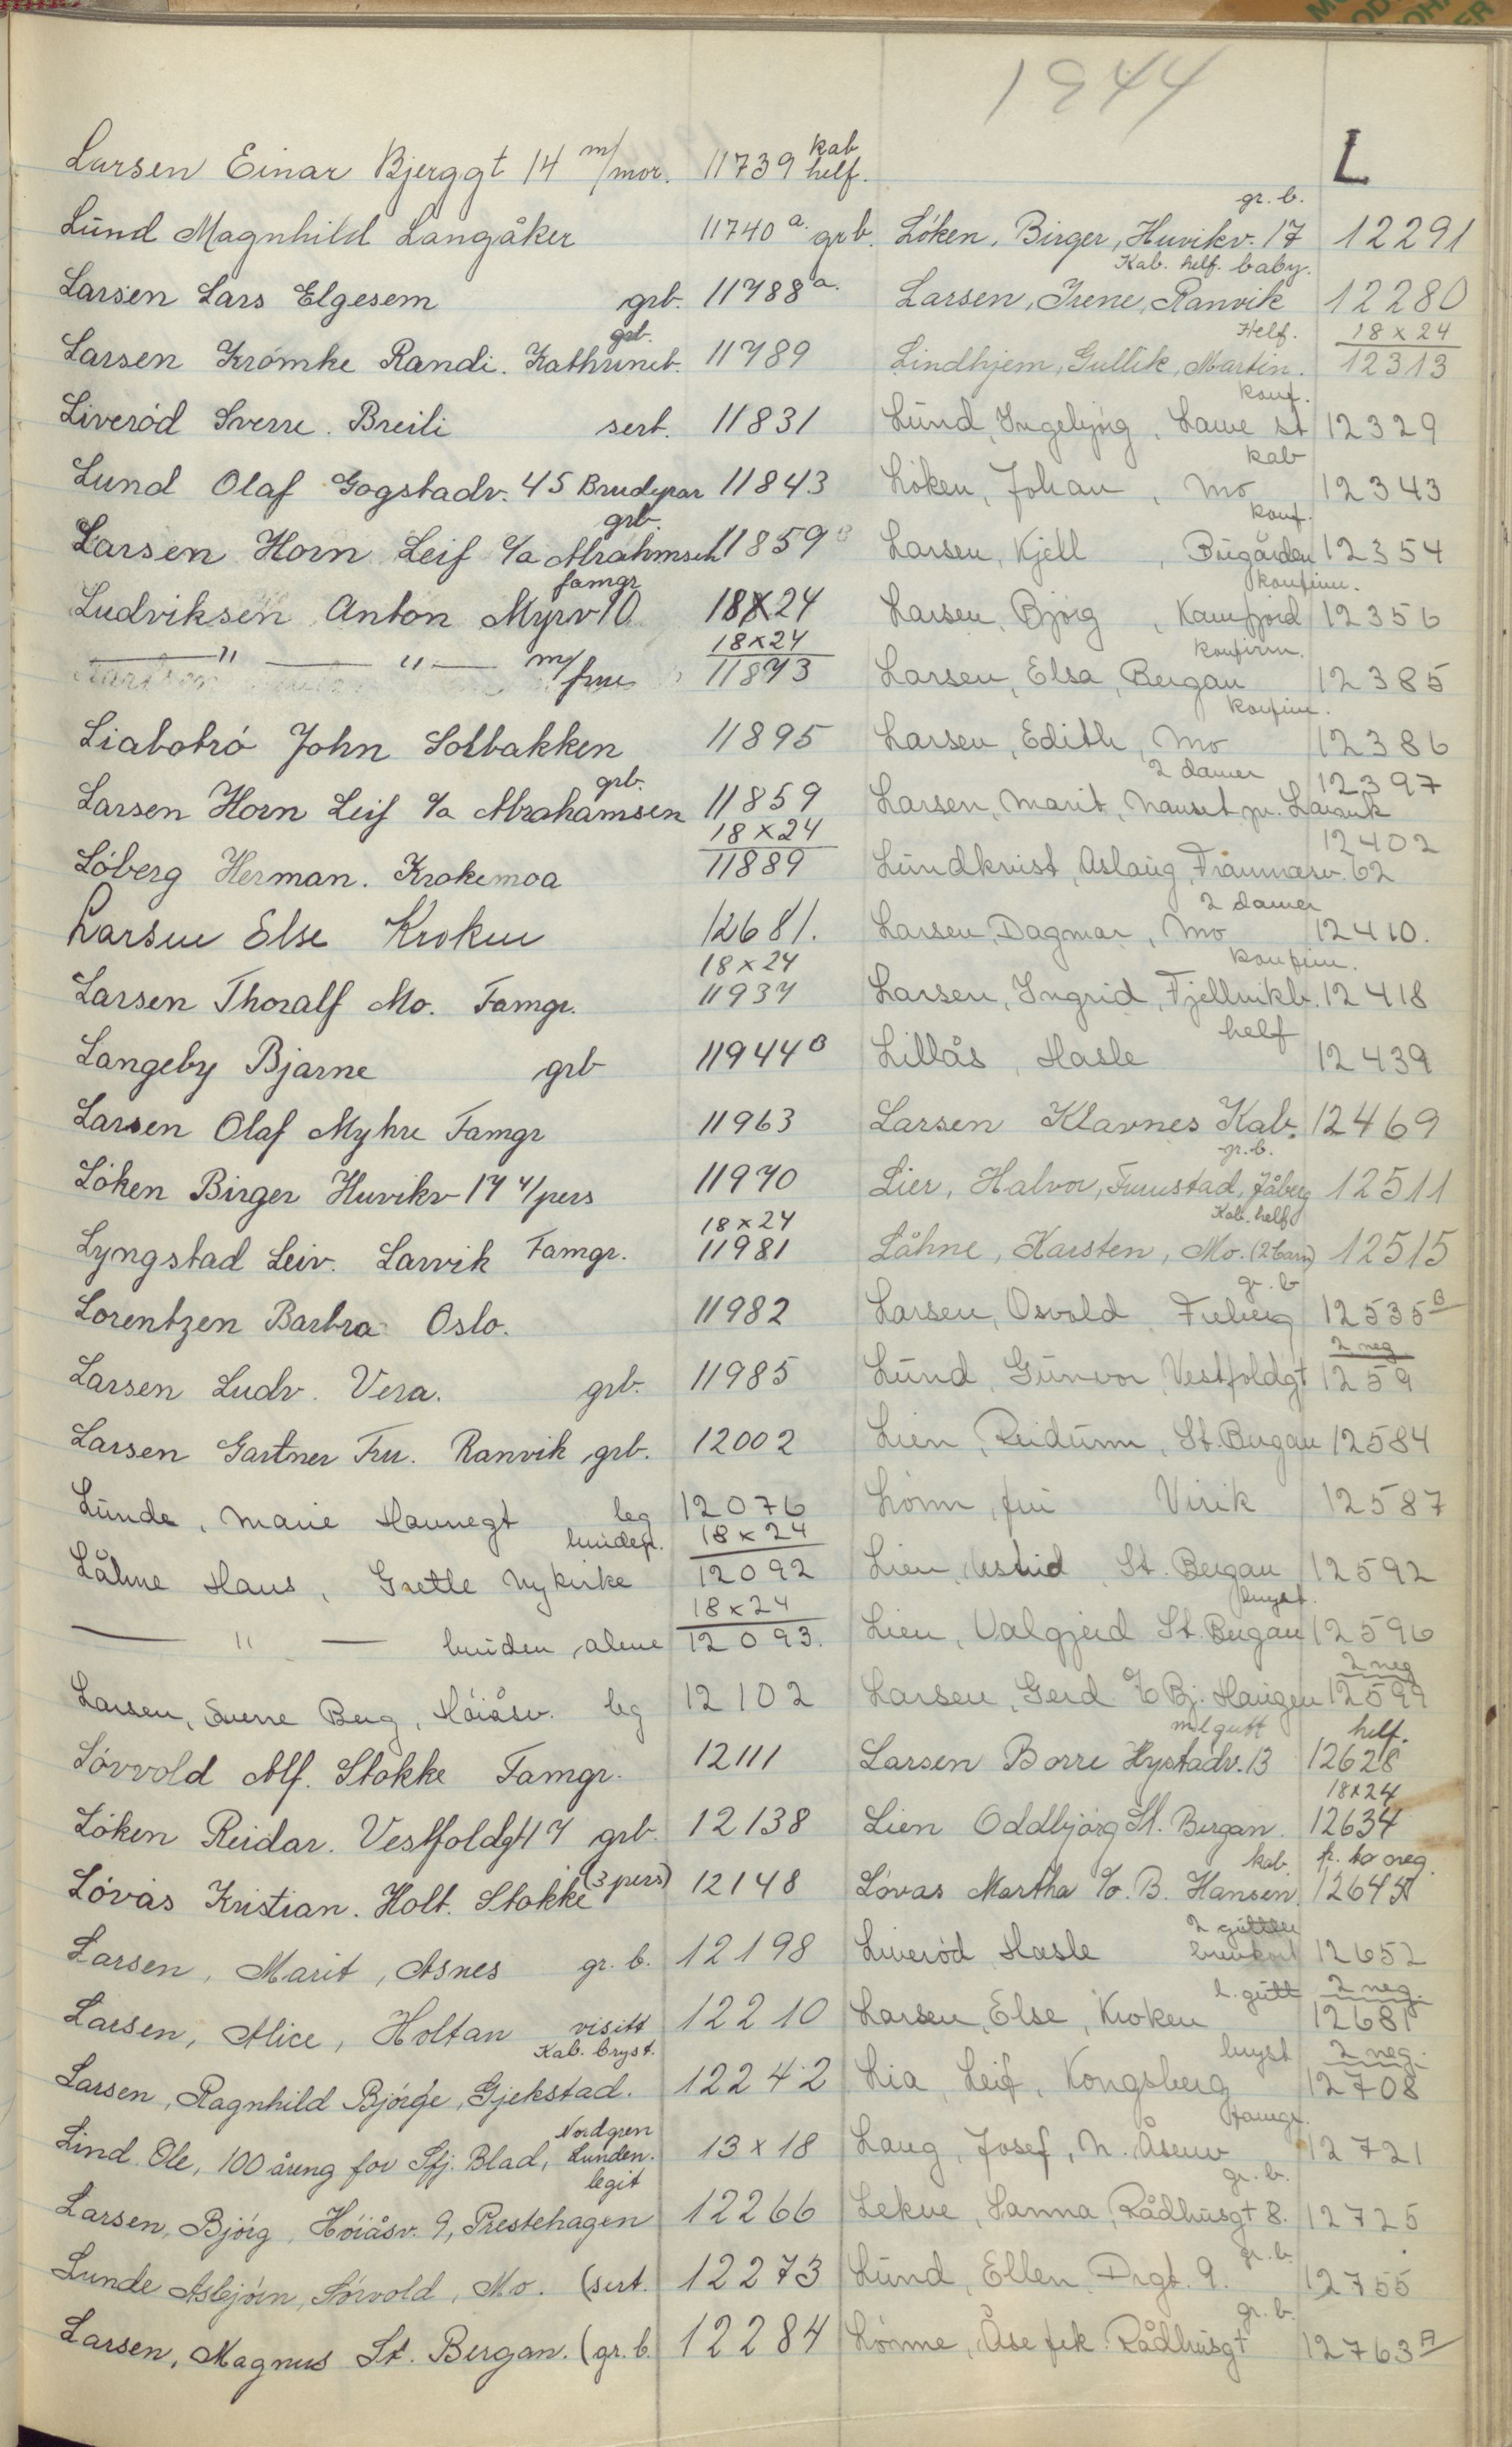 1944
L
Larsen Einar Bjerggt 14 m/mor. 11739 kab helf.
Lund Magnhild Langåker 11740 a. grb.
Larsen Lars Elgesem grb. 11788 a.
Larsen Krömke Randi. Kathrineb. grb. 11789
Liveröd Sverre. Breili sert. 11831
Lund Olaf Gogstadv. 45 Brudepar 11843
Larsen Horn Leif c/a Abrahmsen grb. 11859 B
Ludviksen Anton Myrv 10 famgr 18x24
— " — " — m/frue 18x24 11873
Liabotrö John Solbakken 11895
Larsen Horn Leif c/a Abrahamsen grb. 11859
Löberg Herman. Krokemoa 18x24 11889
Larsen Else Kroken 12681.
Larsen Thoralf Mo. Famgr. 18x24 11937
Langeby Bjarne grb 11944 B
Larsen Olaf Myhre Famgr 11963
Löken Birger Huvikv 17 4/pers 11970
Lyngstad Leiv. Larvik Famgr. 18x24 11981
Lorentzen Barbra Oslo. 11982
Larsen Ludv. Vera. grb. 11985
Larsen Gartner Fru. Ranvik grb. 12002
Lunde, Marie Haunegt leg 12076
Låhne Hans, Grette Nykirke brudep. 18x24 12092
— " — bruden alene 18x24 12093.
Larsen, Sverre Berg, Höiåsv. leg 12102
Lövvold Alf. Stokke Famgr. 12111
Löken Reidar. Vestfoldgt 17 grb. 12138
Lövås Kristian. Holt. Stokke (3 pers) 12148
Larsen, Marit, Asnes gr. b. 12198
Larsen, Alice, Holtan visitt 12210
Larsen, Ragnhild Bjørge, Gjekstad. Kab. bryst. 12242
Lind Ole, 100 åring for Sfj. Blad, Nordgren Lunden. 13x18
Larsen, Bjórg, Höiåsv. 9, Prestehagen legit 12266
Lunde Asbjörn, Sörvold, Mo. (sert. 12273
Larsen, Magnus St. Bergan. (gr. b. 12284
Löken, Birger, Huvikv. 17 gr. b. 12291
Larsen, Irene, Ranvik Kab. helf. baby. 12280
Lindhjem, Gullik, Martin. Helf. 18x24 12313
Lund, Ingebjörg, Lauve st konf. 12329
Löken, Johan, Mo kab 12343
Larsen, Kjell, Bugården konf. 12354
Larsen, Bjórg, Kamfjord konfirm. 12356
Larsen, Elsa, Bergan konfirm. 12385
Larsen, Edith, Mo konfirm. 12386
Larsen, Marit, Nauset pr. Larvik 2 damer 12397
Lundkvist, Aslaug, Framnesv. 62 12402
Larsen, Dagmar, Mo 2 damer 12410.
Larsen, Ingrid, Fjellvikb. konfirm. 12418
Lillås, Hasle helf 12439
Larsen Klavnes Kab. 12469
Lier, Halvor, Furustad, Jåberg gr. b. 12511
Låhne, Karsten, Mo. (2 barn) Kab. helf 12515
Larsen, Osvald, Freberg gr. b 12535 B
Lund, Gunvor, Vestfoldgt 2 neg 1259
Lien, Reidunn, St. Bergan 12584
Lönn, fru Virik 12587
Lien, Astrid, St. Bergan 12592
Lien, Valgjerd St. Bergan bryst. 12596
Larsen, Gerd c/o Bj. Haugen 2 neg 12599
Larsen Borre Hystadv. 13 m/gutt helf. 12628
Lien Oddbjörg St. Bergan. 18x24 12634
Lövas Martha c/o. B. Hansen. kab. 12645
Liveröd Hasle 2 gutter 12652
Larsen, Else, Kroken l. gutt 2 neg. 12681
Lia, Leif, Kongsberg bryst 2 neg. 12708
Laug, Josef, N. Åsenv famgr. 12721
Lekve, Sanna, Rådhusgt 8. gr. b. 12725
Lund, Ellen Drgt. 9. gr. b. 12755
Lönne, Åse frk. Rådhusgt gr. b. 12763 A